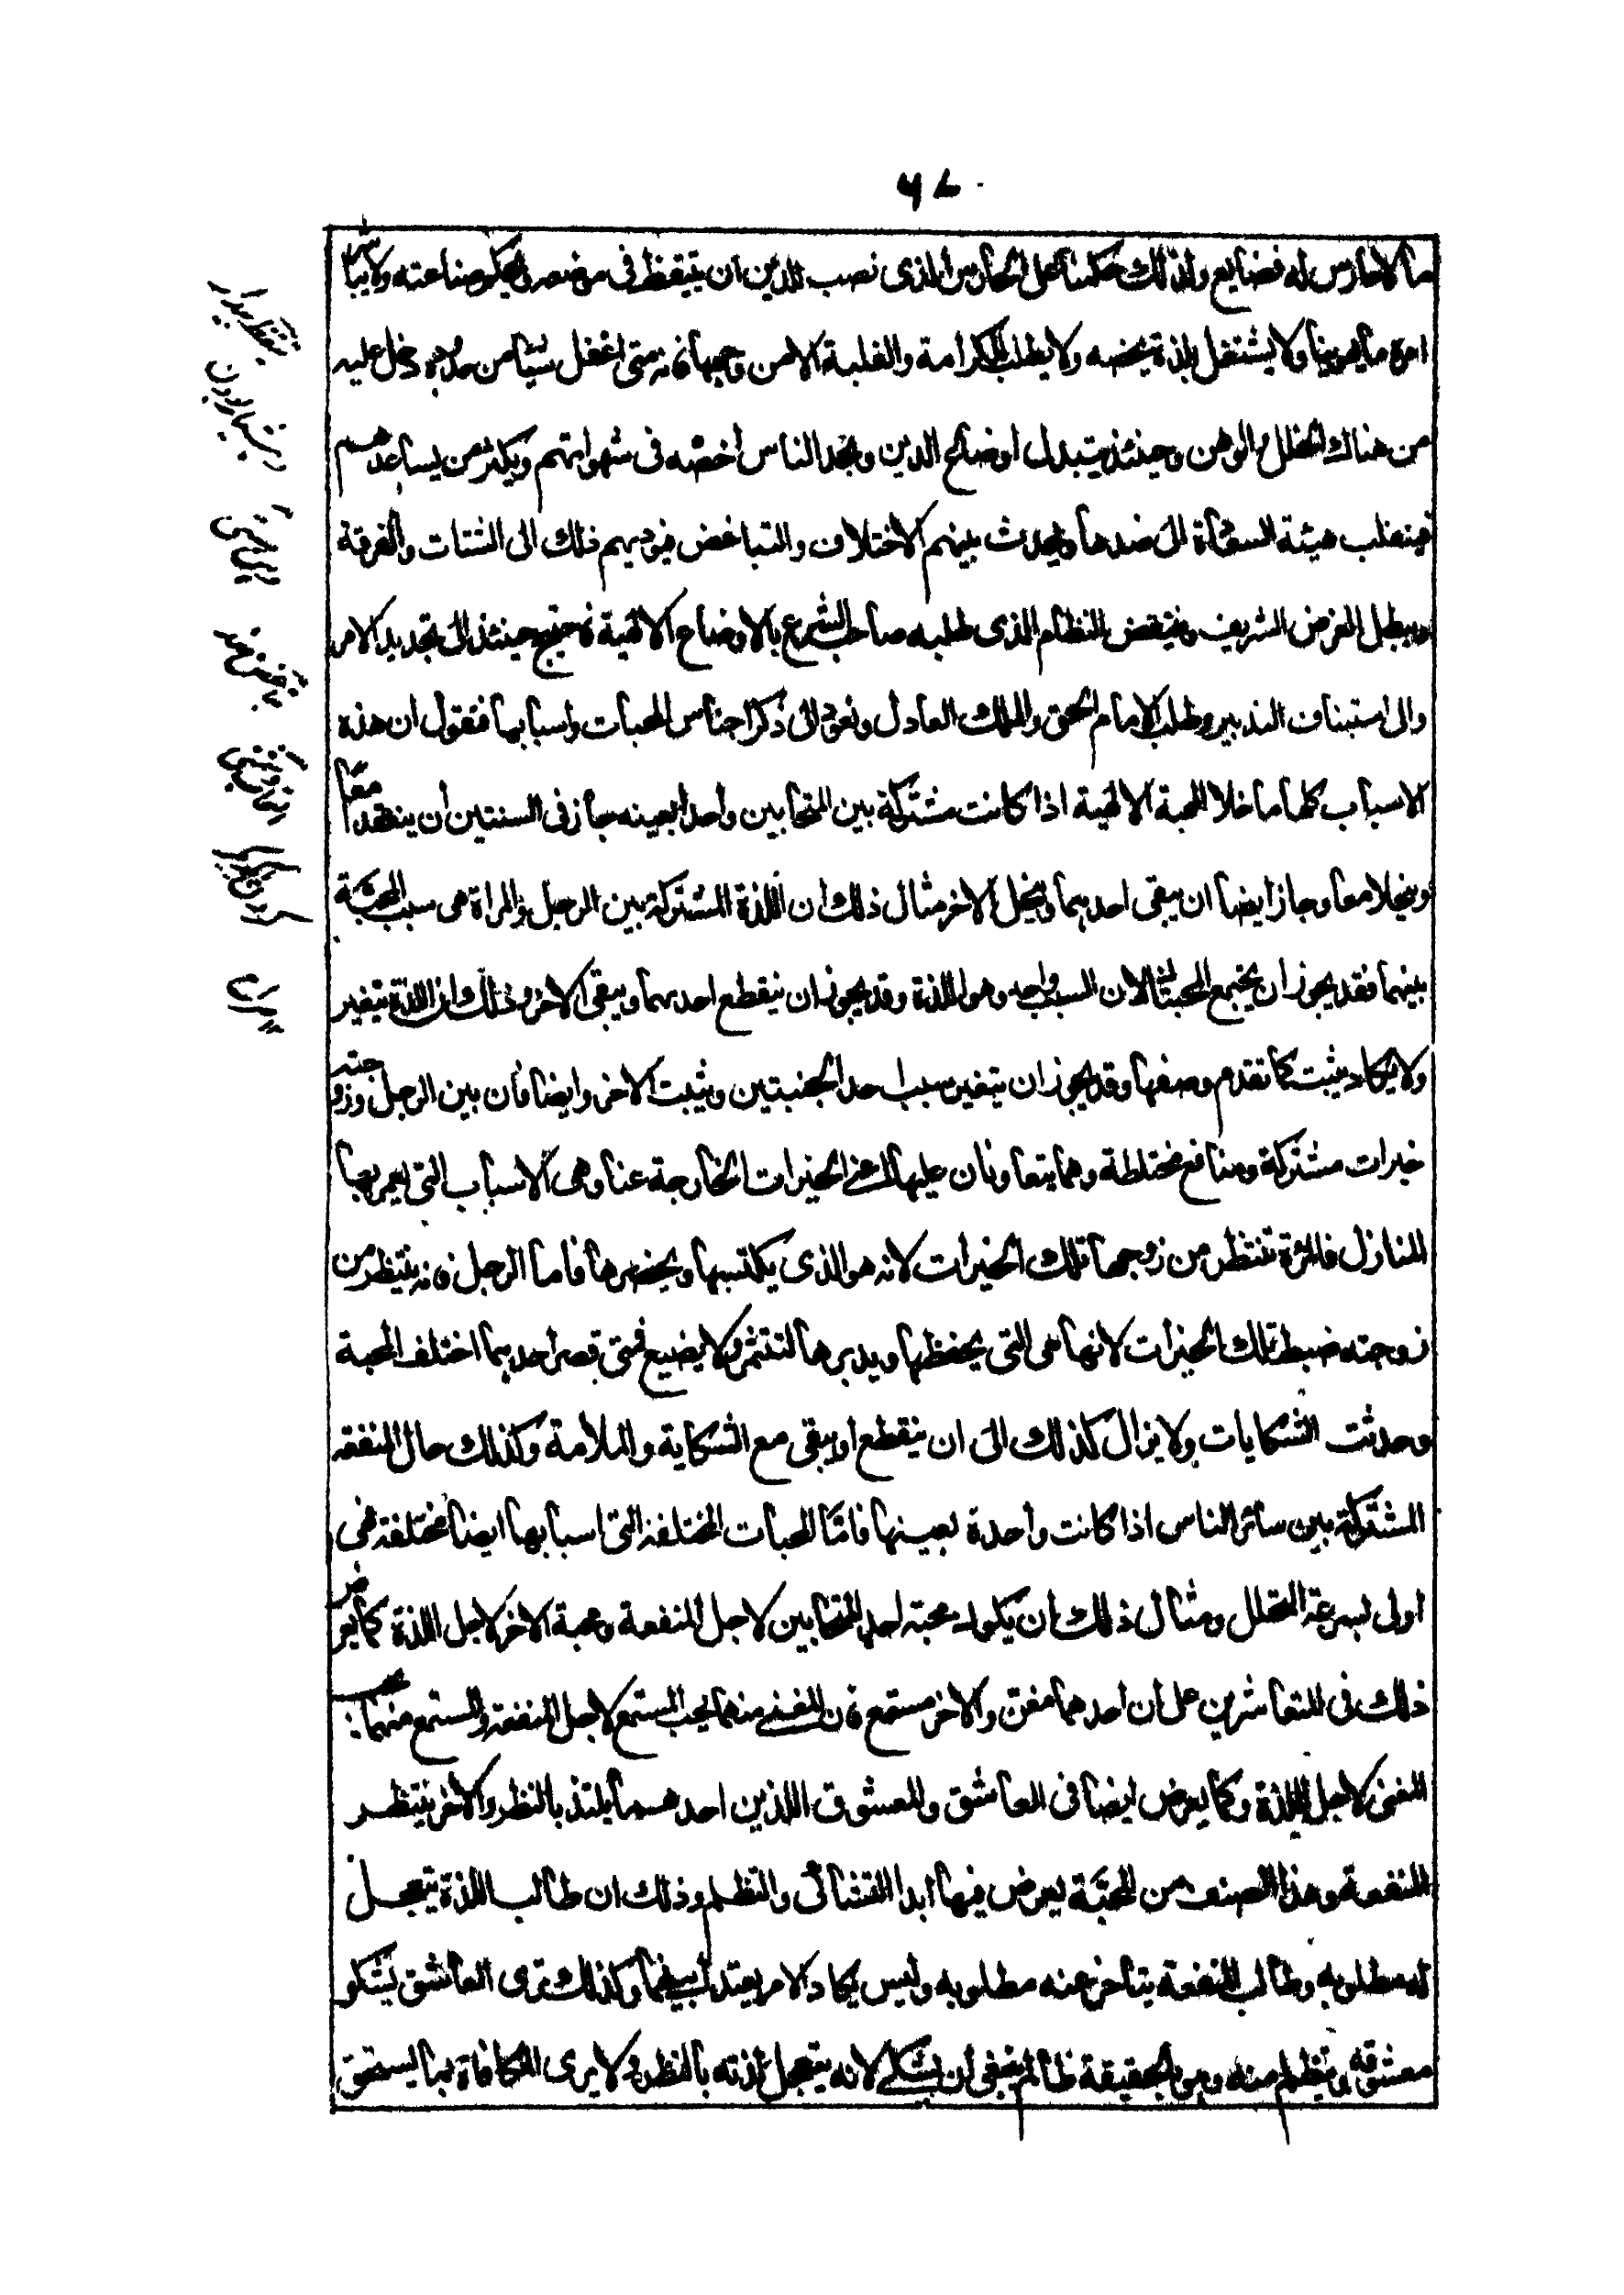 ٦٧
ما لا حارس له فضايع ولذلك حكمنا على الحارس الذى نصب للدين ان يتيقظ فى موضعه ويحكم صناعته ولا يباشر
امره بالهوينا ولا يشتغل بلذة تخصه ولا يطلب الكرامة والغلبة الا من وجهها فانه متى اغفل شيئا من حدوده دخل عليه
من هناك الخلل والوهن وحينئذ يتبدل اوضاع الدين ويجد الناس رخصة فى شهواتهم ويكثر من يساعدهم
فينقلب هيئة السعادة الى ضدها ويحدث بينهم الاختلاف والتباغض فيوديهم ذلك الى الشتات والفرقة
ويبطل الغرض الشريف وينتقض النظام الذى طلبه صاحب الشرع بالاوضاع الالهية فاحتيج حينئذ الى تجديد الامر
والى استيناف التدبير وطلب الامام الحق والملك العادل ونعود الى ذكر اجناس المحبات واسبابها فنقول ان هذه
الاسباب كلها ما خلا المحبة الالهية اذا كانت مشتركة بين المتحابين واحدا بعينه جاز فى السنتين أن ينعقدا معًا
وينحلا معا وجاز ايضا ان يبقى احدهما وينحل الاخر مثال ذلك ان اللذة المشتركة بين الرجل والمراة هى سبب المحبّة
بينهما فقد يجوز ان يجتمع المحبتان لان السبب واحد وهو اللذة وقد يجوز ان ينقطع احدهما ويبقى الاخر وذلك ان اللذة تتغير
ولا يكاد يثبت كما تقدم وصفها وقد يجوز ان يتغير سبب احد الجنبتين ويثبت الاخر وايضا فان بين الرجل وزوجته
خيرات مشتركة ومنافع مختلطة وهما يتعاونان عليها اعنى الخيرات الخارجة عنا وهى الاسباب التى يعمر بها
المنازل فالمرئة تنتظر من زوجها تلك الخيرات لانه هو الذى يكتسبها ويحضرها فاما الرجل فانه ينتظر من
زوجته ضبط تلك الخيرات لانها هى التى يحفظها ويدبرها لتثمر ولا يضيع فمتى قصر احدهما اختلف المحبة
وحدثت الشكايات ولا يزال كذلك الى ان ينقطع او يبقى مع الشكاية والملامة وكذلك حال المنفعه
المشتركة بين سائر الناس اذا كانت واحدة بعينها فامّا المحبات المختلفة التى اسبابها ايضا مختلفة هى
اولى بسرعة التحلل ومثال ذلك ان يكون محبة احد المتحابين لاجل المنفعة ومحبة الاخر لاجل اللذة كما يعرض
ذلك فى المتعاشرين على أن احدهما مغن والاخر مستمع فان المغنى منهما يحب المستمع لاجل المنفعة والمستمع منهما يحب
المغنى لاجل اللذة وكما يعرض ايضا فى العاشق والمعشوق اللذين احدهما يلتذ بالنظر والاخر ينتظر
المنفعة وهذا الصنف من المحبّة يعرض فيها ابدا التشاكى والتظلم وذلك ان طالب اللذة يتعجل
له مطلوبه وطالب المنفعة يتاخر عنه مطلوبه وليس يكاد الامر يعتدل بينهما وكذلك ترى العاشق يشكو
معشوقه ويتظلم منه وهو بالحقيقة ظالم ينبغى أن يشتكى لانه يتعجل لذته بالنظر ولا يرى المكافاة بما يستحق